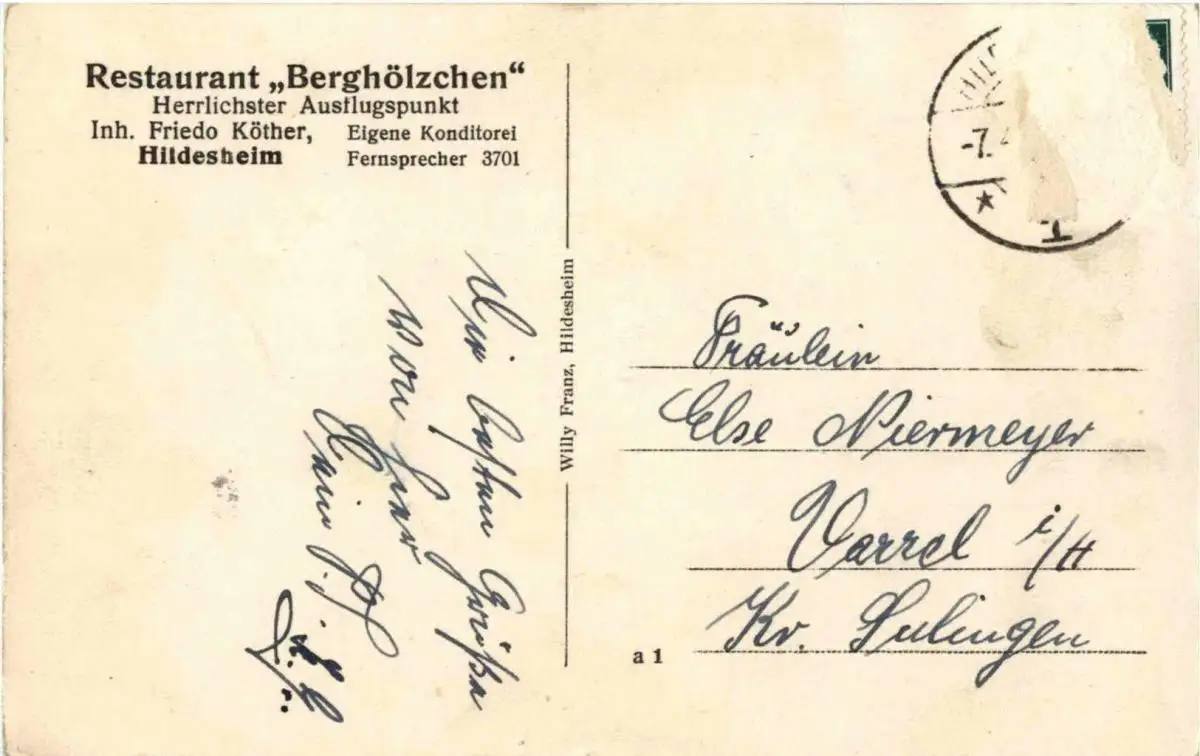 Restaurant „Berghölzchen“
Herrlichster Ausflugspunkt
Inh. Friedo Köther, Eigene Konditorei
Hildesheim Fernsprecher 3701
Die besten Grüße
von hier
Willy Franz, Hildesheim
-7.
Fräulein
Else Niermeyer
Varrel i/H
Kr. Sulingen
a 1